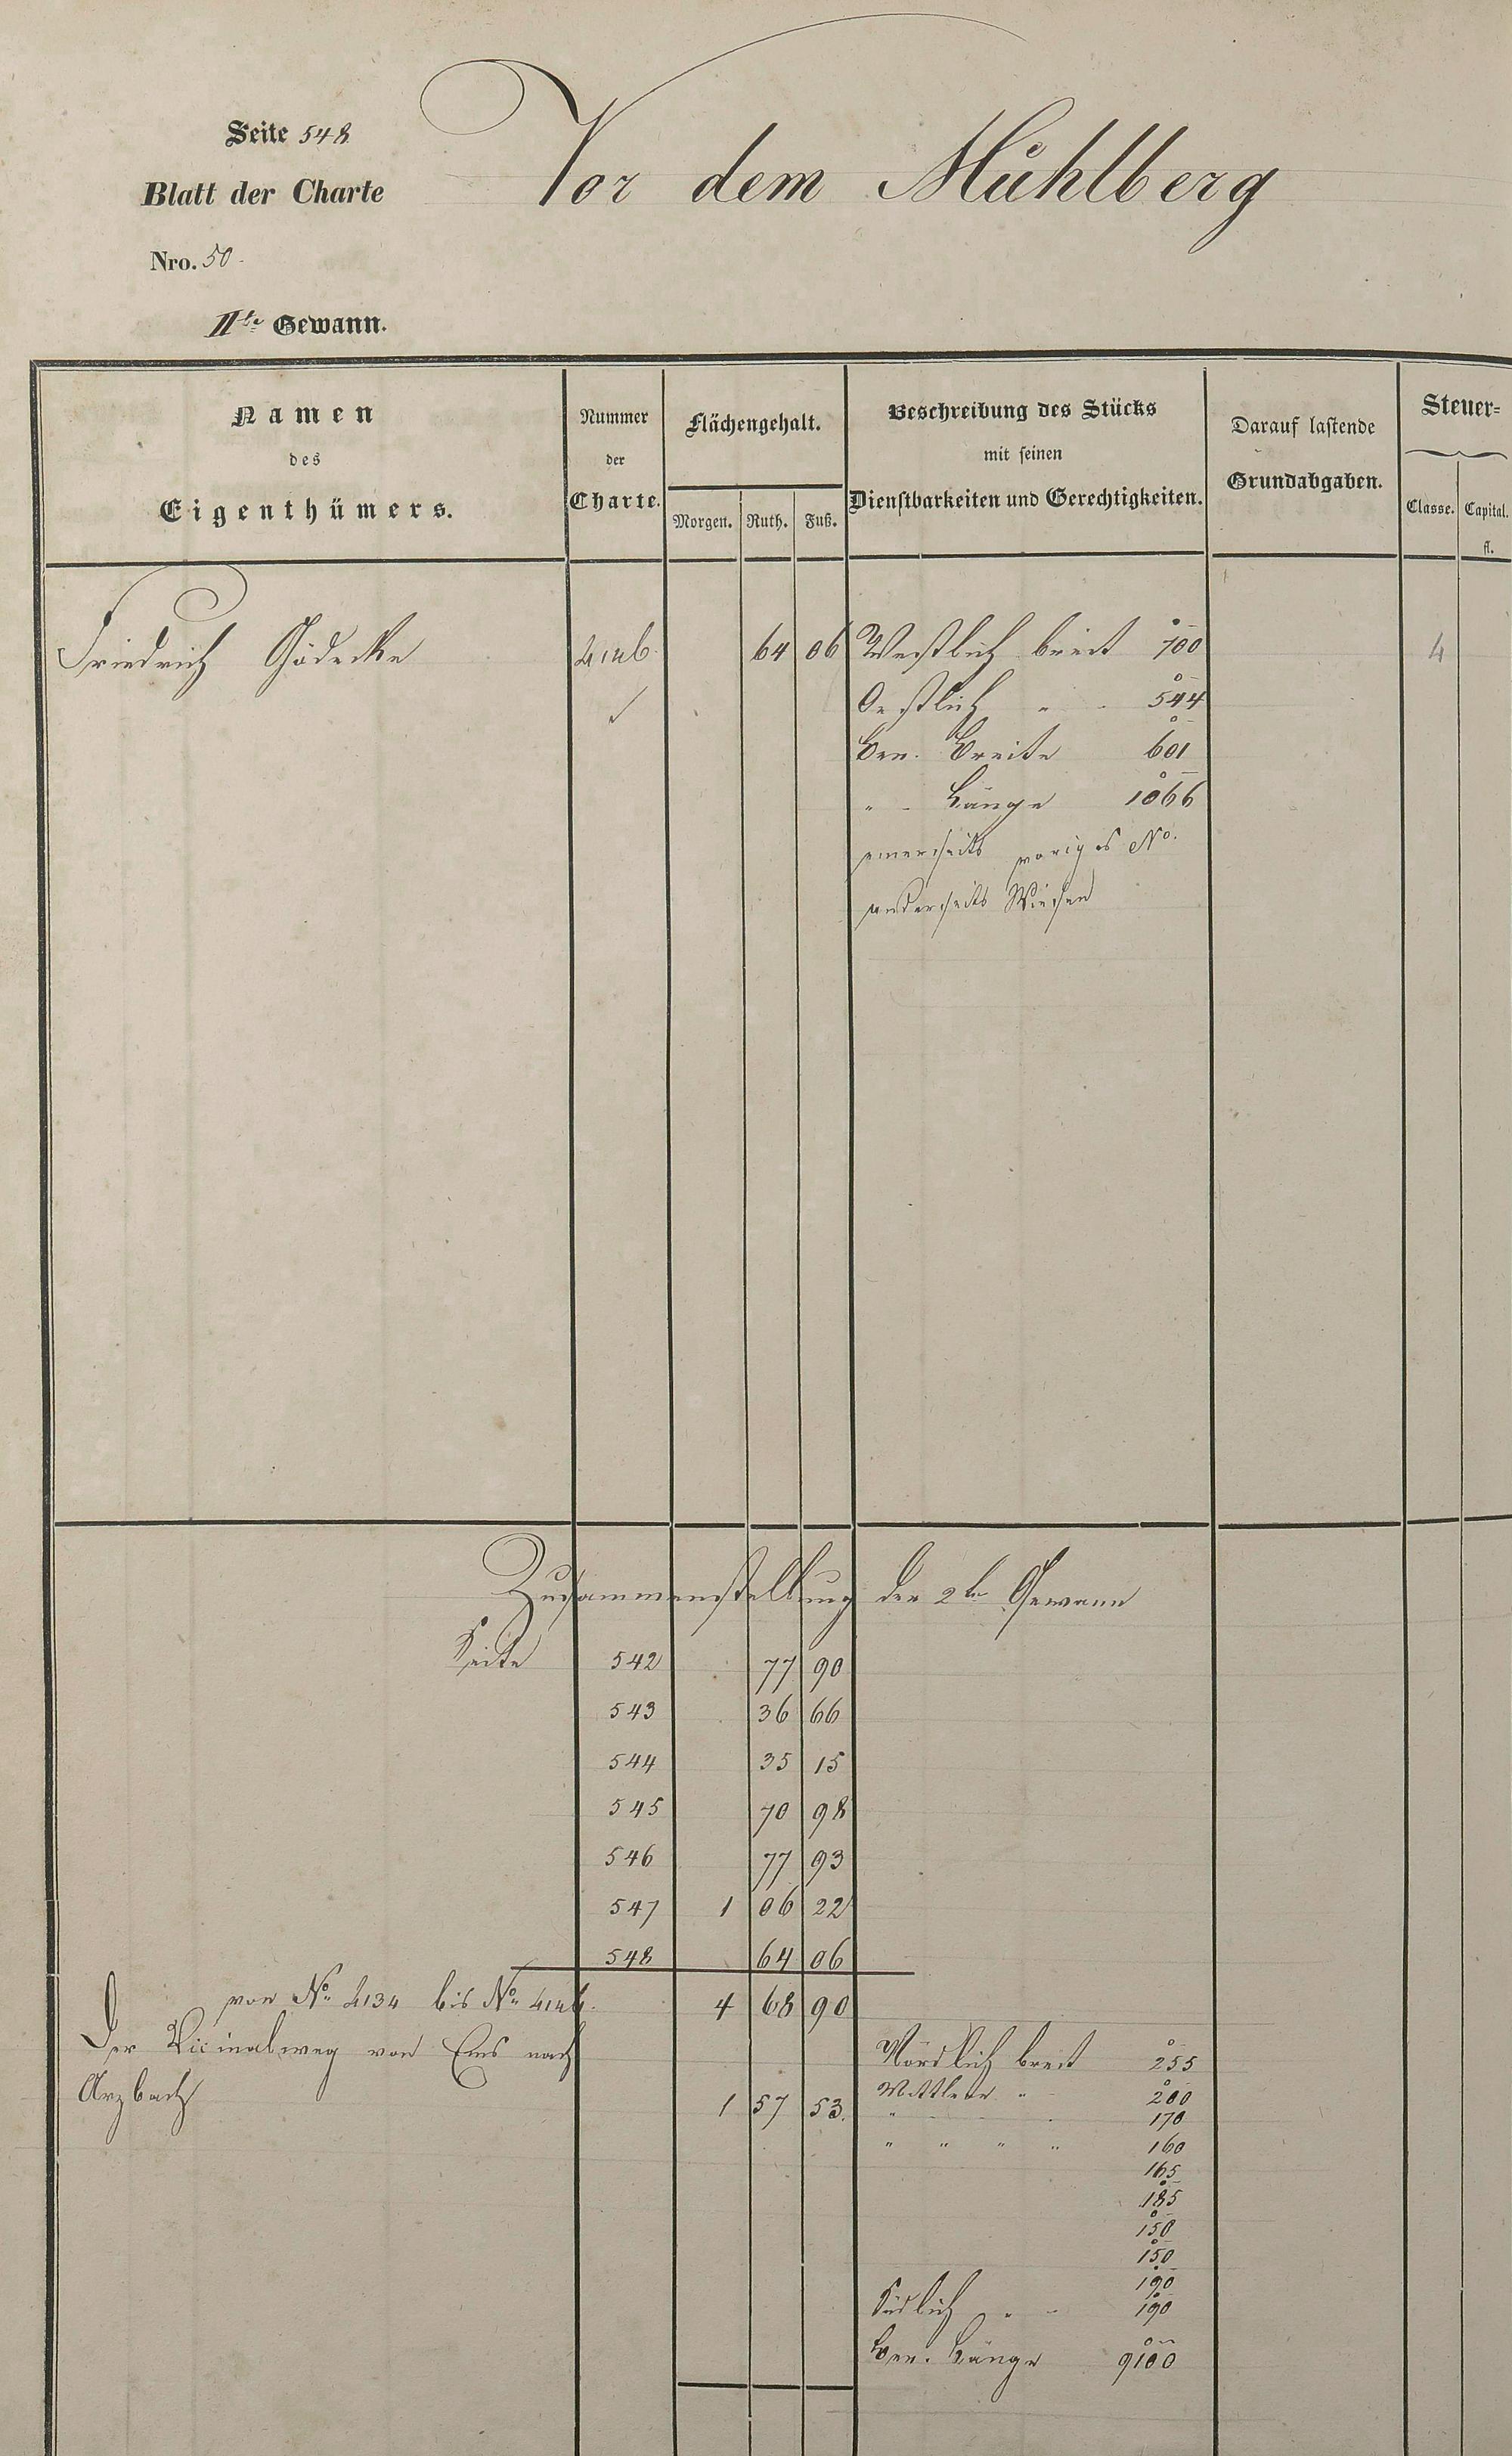 Seite 548
Vor dem Mühlberg
Blatt der Charte
Nro. 50.
IIte Gewann.
Namen des Eigenthümers.
Nummer der Charte.
Flächengehalt.
Morgen. Ruth. Fuß.
Beschreibung des Stücks mit seinen Dienstbarkeiten und Gerechtigkeiten.
Darauf lastende Grundabgaben.
Steuer-
Classe. Capital.
fl.
Friedrich Gödecke 4146. 64 06 Westlich breit 700 4
Oestlich " - 544
Ber. Breite 601
" - Länge 1066
einerseits voriges No.
anderseits Wiesen
Zusammenstellung der 2te Gewann
Seite 542 77 90
543 36 66
544 35 15
545 70 98
546 77 93
547 1 06 22
548 64 06
von No. 4134 bis No. 4146. 4 68 90
Der Vicinalweg von Ems nach Nördlich breit 255
Arzbach 1 57 53. Mittlere " 200
" - - 170
" " " " 160
165
185
150
150
190
Südlich " - 190
Ber. Länge 9100